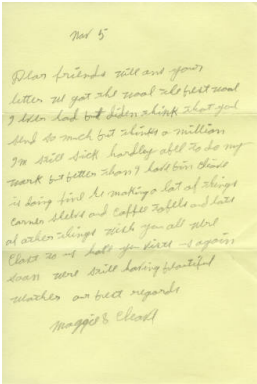 Nov 5
Dear friends will ans your
letter we got the wool the best wool
I ever had but diden think that you
send so much but thinks a million
I'm still sick hardley able to do my
work but better than I have bin
is doing fine he making a lot of things
corner and coffee tables and lots
of other things wish you all were
close to us
soon were still having beautiful
weather our best regards
Maggie &